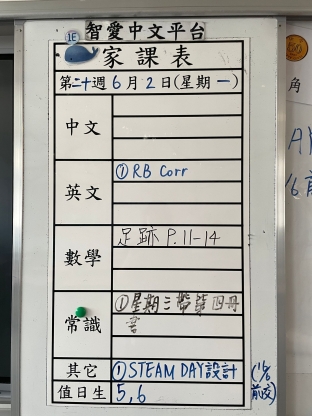 1E
智愛中文平台
家課表
第二十週6月2日(星期一)
中文
英文
①RB Corr
數學
足跡 P.11-14
常識
①星期三帶第四冊
書
其它
①STEAM DAY設計
(11/6
前交)
值日生
5,6
角